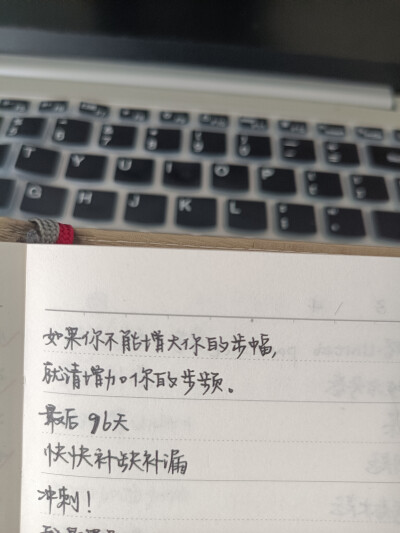 如果你不能增大你的步幅,
就请增加你的步频。
最后 96天
快快补缺补漏
冲刺!
T Y U I O P
G H J K L